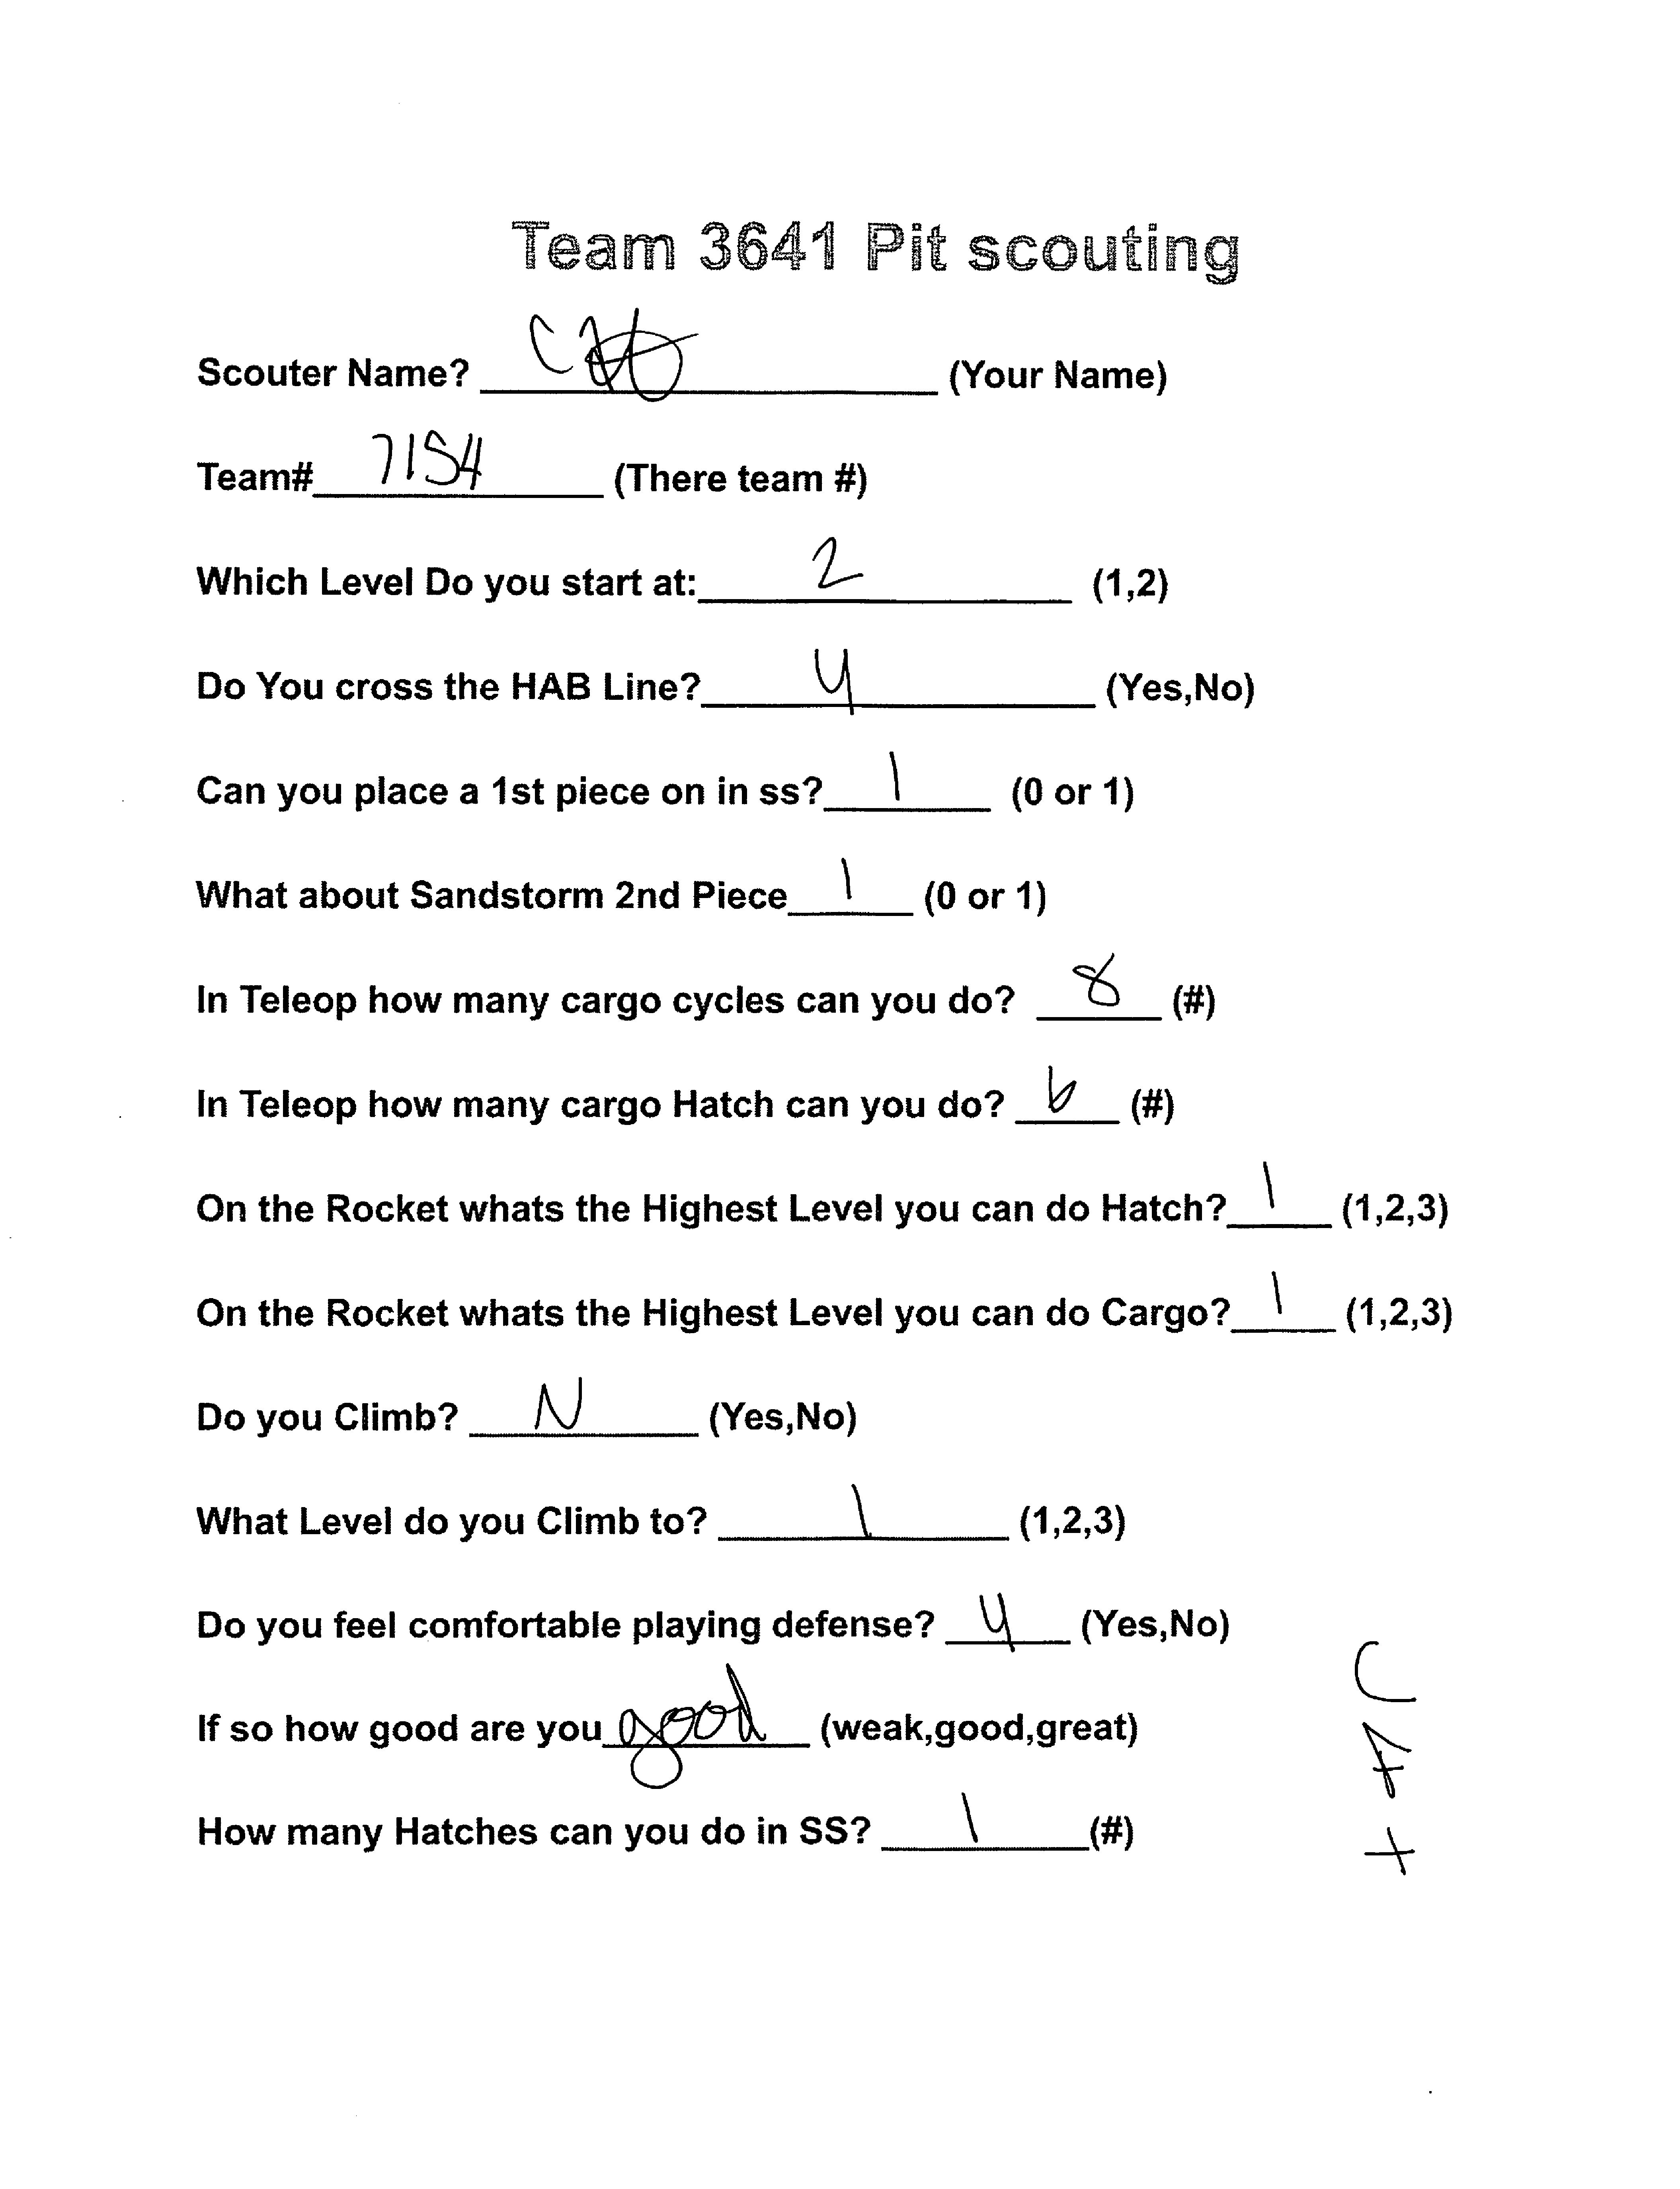 Team 3641 Pit scouting
Scouter Name? (Your Name)
Team# 7154 (There team #)
Which Level Do you start at: 2 (1,2)
Do You cross the HAB Line? y (Yes,No)
Can you place a 1st piece on in ss? 1 (0 or 1)
What about Sandstorm 2nd Piece 1 (0 or 1)
In Teleop how many cargo cycles can you do? 8 (#)
In Teleop how many cargo Hatch can you do? 6 (#)
On the Rocket whats the Highest Level you can do Hatch? 1 (1,2,3)
On the Rocket whats the Highest Level you can do Cargo? 1 (1,2,3)
Do you Climb? N (Yes,No)
What Level do you Climb to? 1 (1,2,3)
Do you feel comfortable playing defense? y (Yes,No)
If so how good are you good (weak,good,great)
How many Hatches can you do in SS? 1 (#)